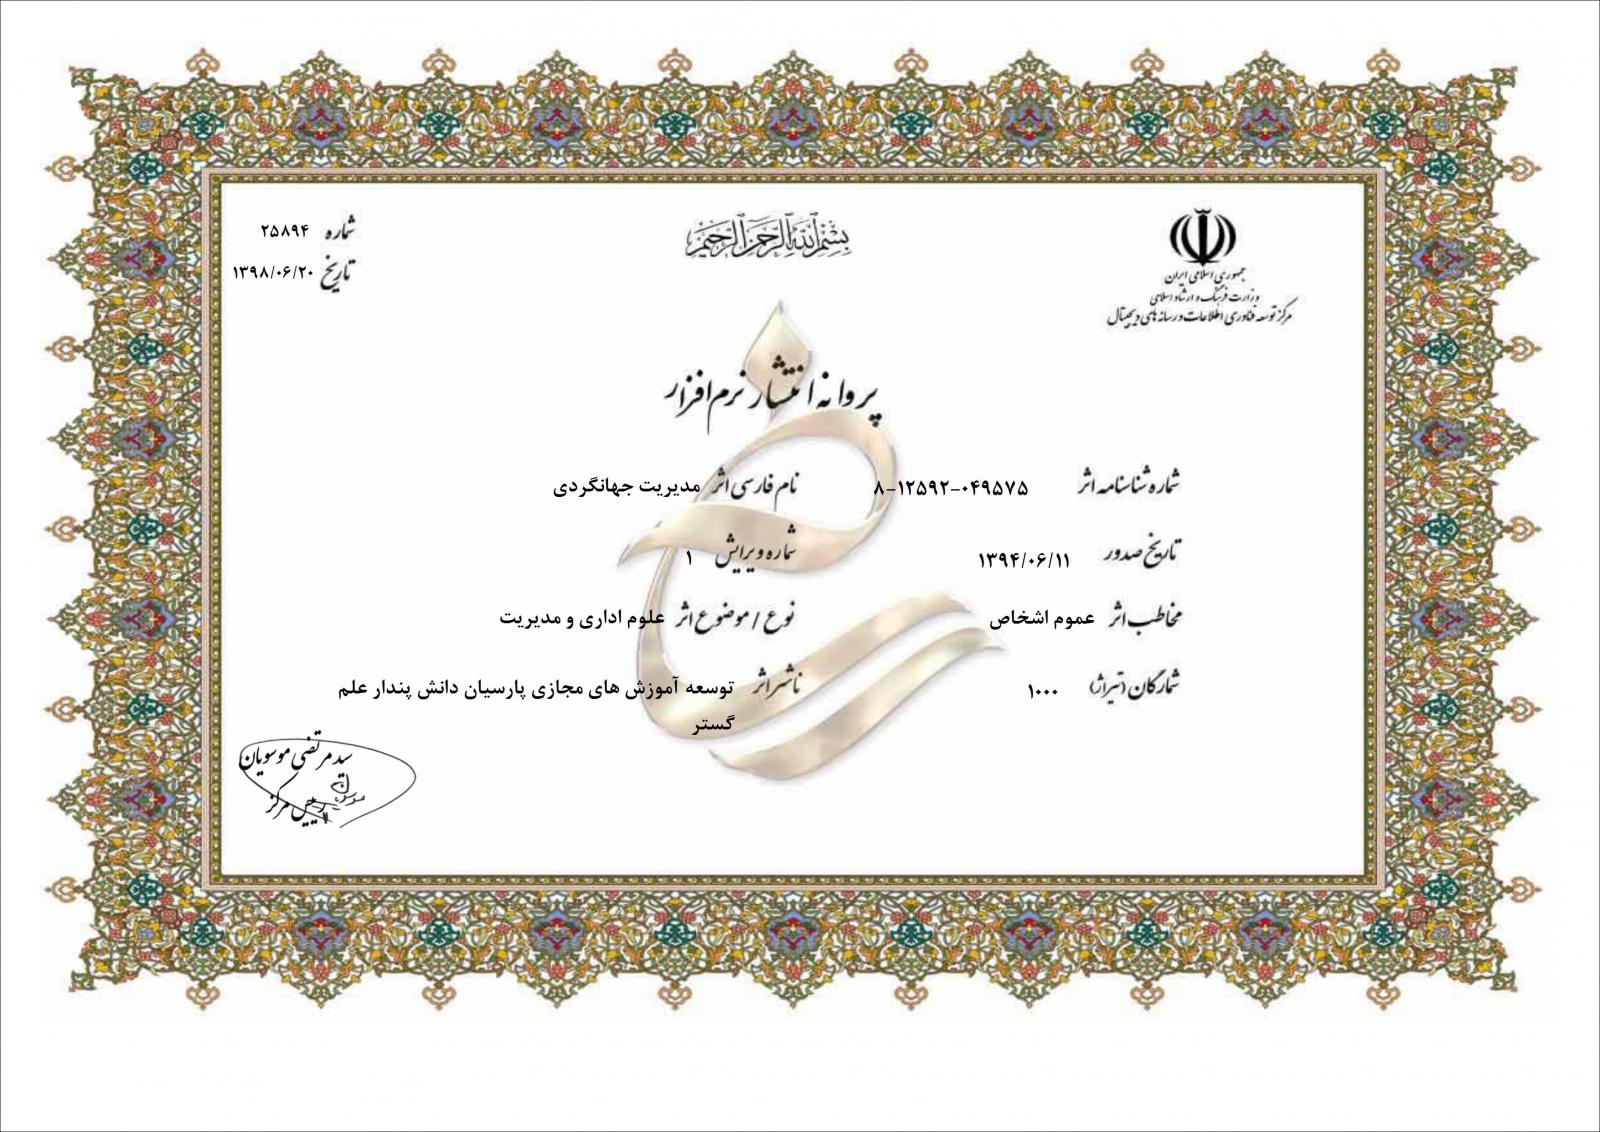 بسم الله الرحمن الرحیم
جمهوری اسلامی ایران
وزارت فرهنگ و ارشاد اسلامی
مرکز توسعه فناوری اطلاعات و رسانه های دیجیتال
شماره ۲۵۸۹۴
تاریخ ۱۳۹۸/۰۶/۲۰
پروانه انتشار نرم افزار
شماره شناسنامه اثر ۸-۱۲۵۹۲-۰۴۹۵۷۵
نام فارسی اثر مدیریت جهانگردی
تاریخ صدور ۱۳۹۴/۰۶/۱۱
شماره ویرایش ۱
مخاطب اثر عموم اشخاص
نوع / موضوع اثر علوم اداری و مدیریت
شمارگان (تیراژ) ۱۰۰۰
ناشر اثر توسعه آموزش های مجازی پارسیان دانش پندار علم
گستر
سید مرتضی موسویان
رییس مرکز